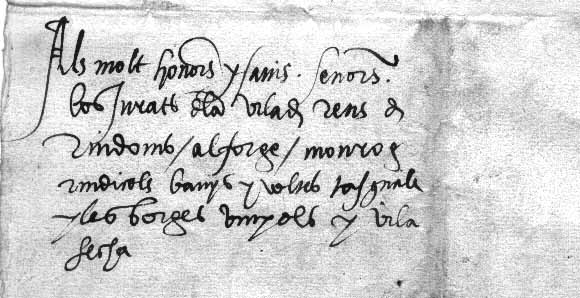 Als molt honors y savis senors
los Jurats dla vila d reus d
riudoms / alforge / monrog
riudicols banys y voltes
y les borges vinyols y vila
secha